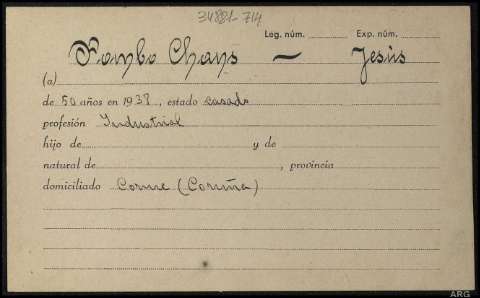 34881-714
Leg. núm. Exp. núm.
Pombo Chans — Jesús
(a)
de 50 años en 1937, estado casado
profesión Industrial
hijo de y de
natural de , provincia
domiciliado Corme (Coruña)
ARG